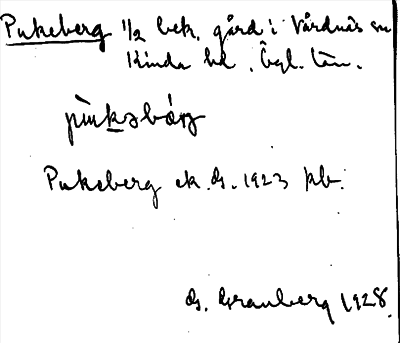 Pukeberg 1/2 bek. gård i Vårdnäs sn
Kinda hd, Ögl. län.
Pukeberg ek. bl. 1923 pb.
G. Granberg 1928.